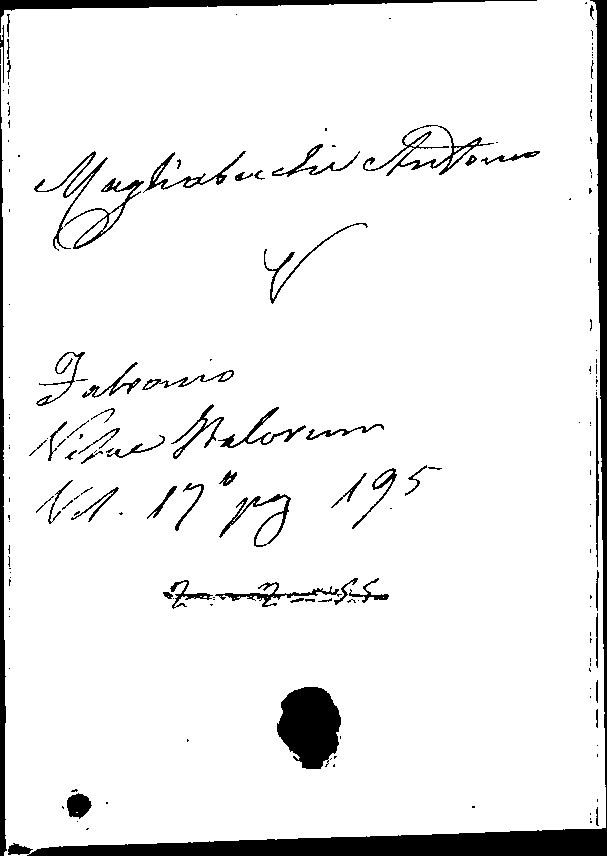 Magliabechi Antonio
V
Fabronio
Vitae Italorum
Vol. 17° pg 195